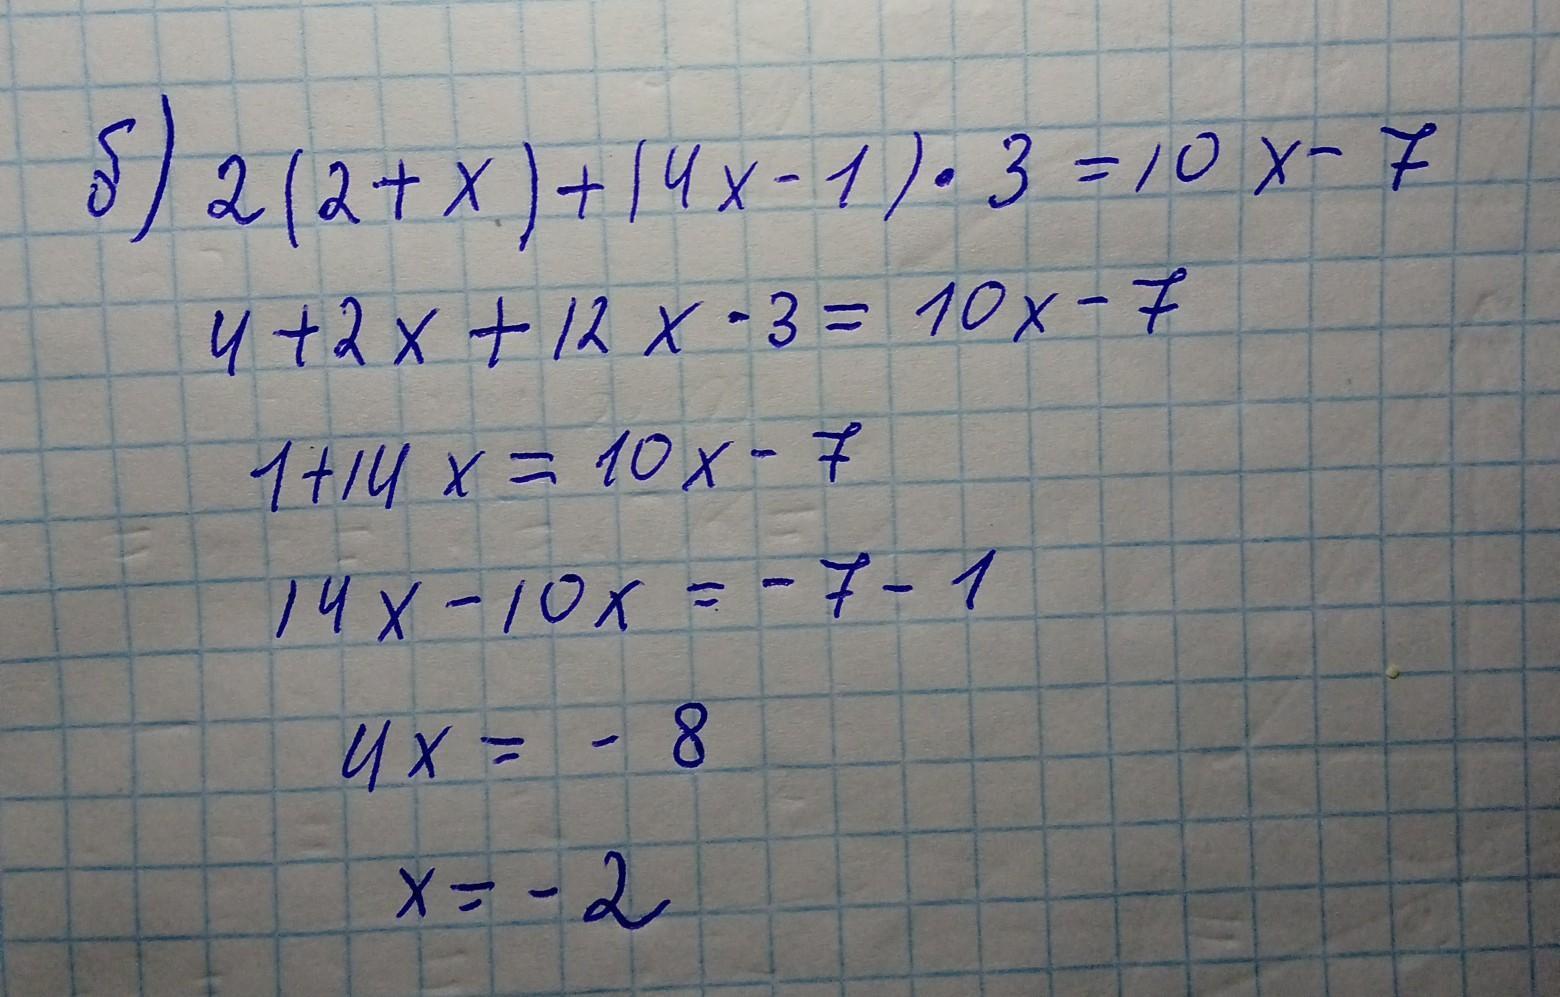 б) 2(2+x)+(4x-1)·3=10x-7
4+2x+12x-3=10x-7
1+14x=10x-7
14x-10x=-7-1
4x=-8
x=-2